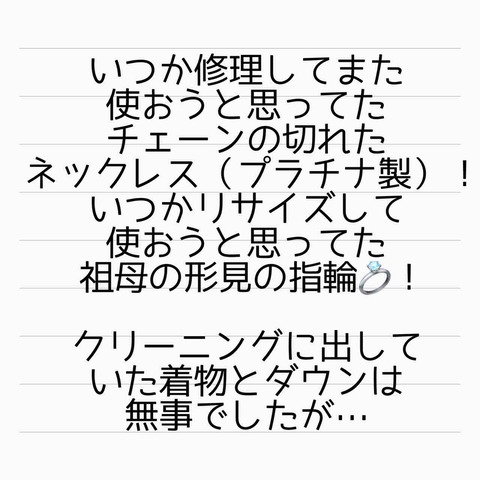 いつか修理してまた
使おうと思ってた
チェーンの切れた
ネックレス（プラチナ製）！
いつかリサイズして
使おうと思ってた
祖母の形見の指輪💍！
クリーニングに出して
いた着物とダウンは
無事でしたが…